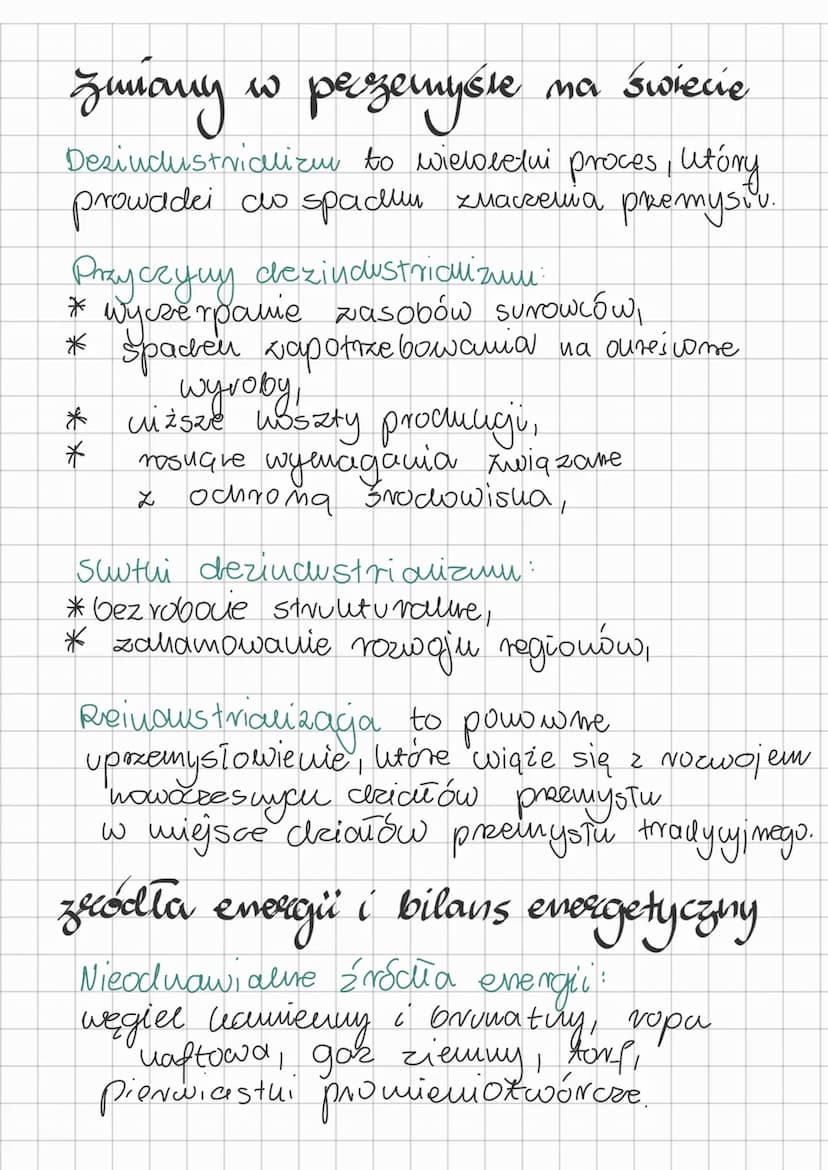 zmiany w przemyśle na świecie
Dezindustrializm to wieloletni proces, który
prowadzi do spadku znaczenia przemysłu.
Przyczyny dezindustrializmu:
* wyczerpanie zasobów surowców,
* spadek zapotrzebowania na określone
wyroby,
* niższe koszty produkcji,
* rosnące wymagania związane
z ochroną środowiska,
Skutki dezindustrializmu:
* bezrobocie strukturalne,
* zahamowanie rozwoju regionów,
Reindustrializacja to ponowne
uprzemysłowienie, które wiąże się z rozwojem
nowoczesnych działów przemysłu
w miejsce działów przemysłu tradycyjnego.
źródła energii i bilans energetyczny
Nieodnawialne źródła energii:
węgiel kamienny i brunatny, ropa
naftowa, gaz ziemny, torf,
pierwiastki promieniotwórcze.